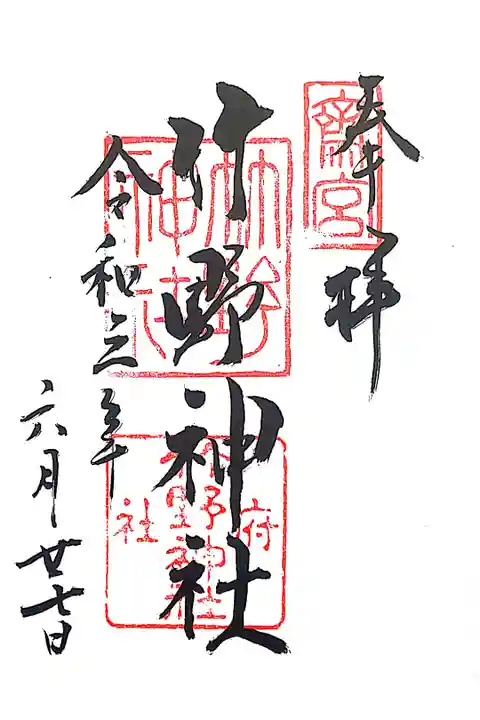 奉拝
齋宮
竹野神社
竹野神社
府社
竹野神社
令和三年
六月廿七日